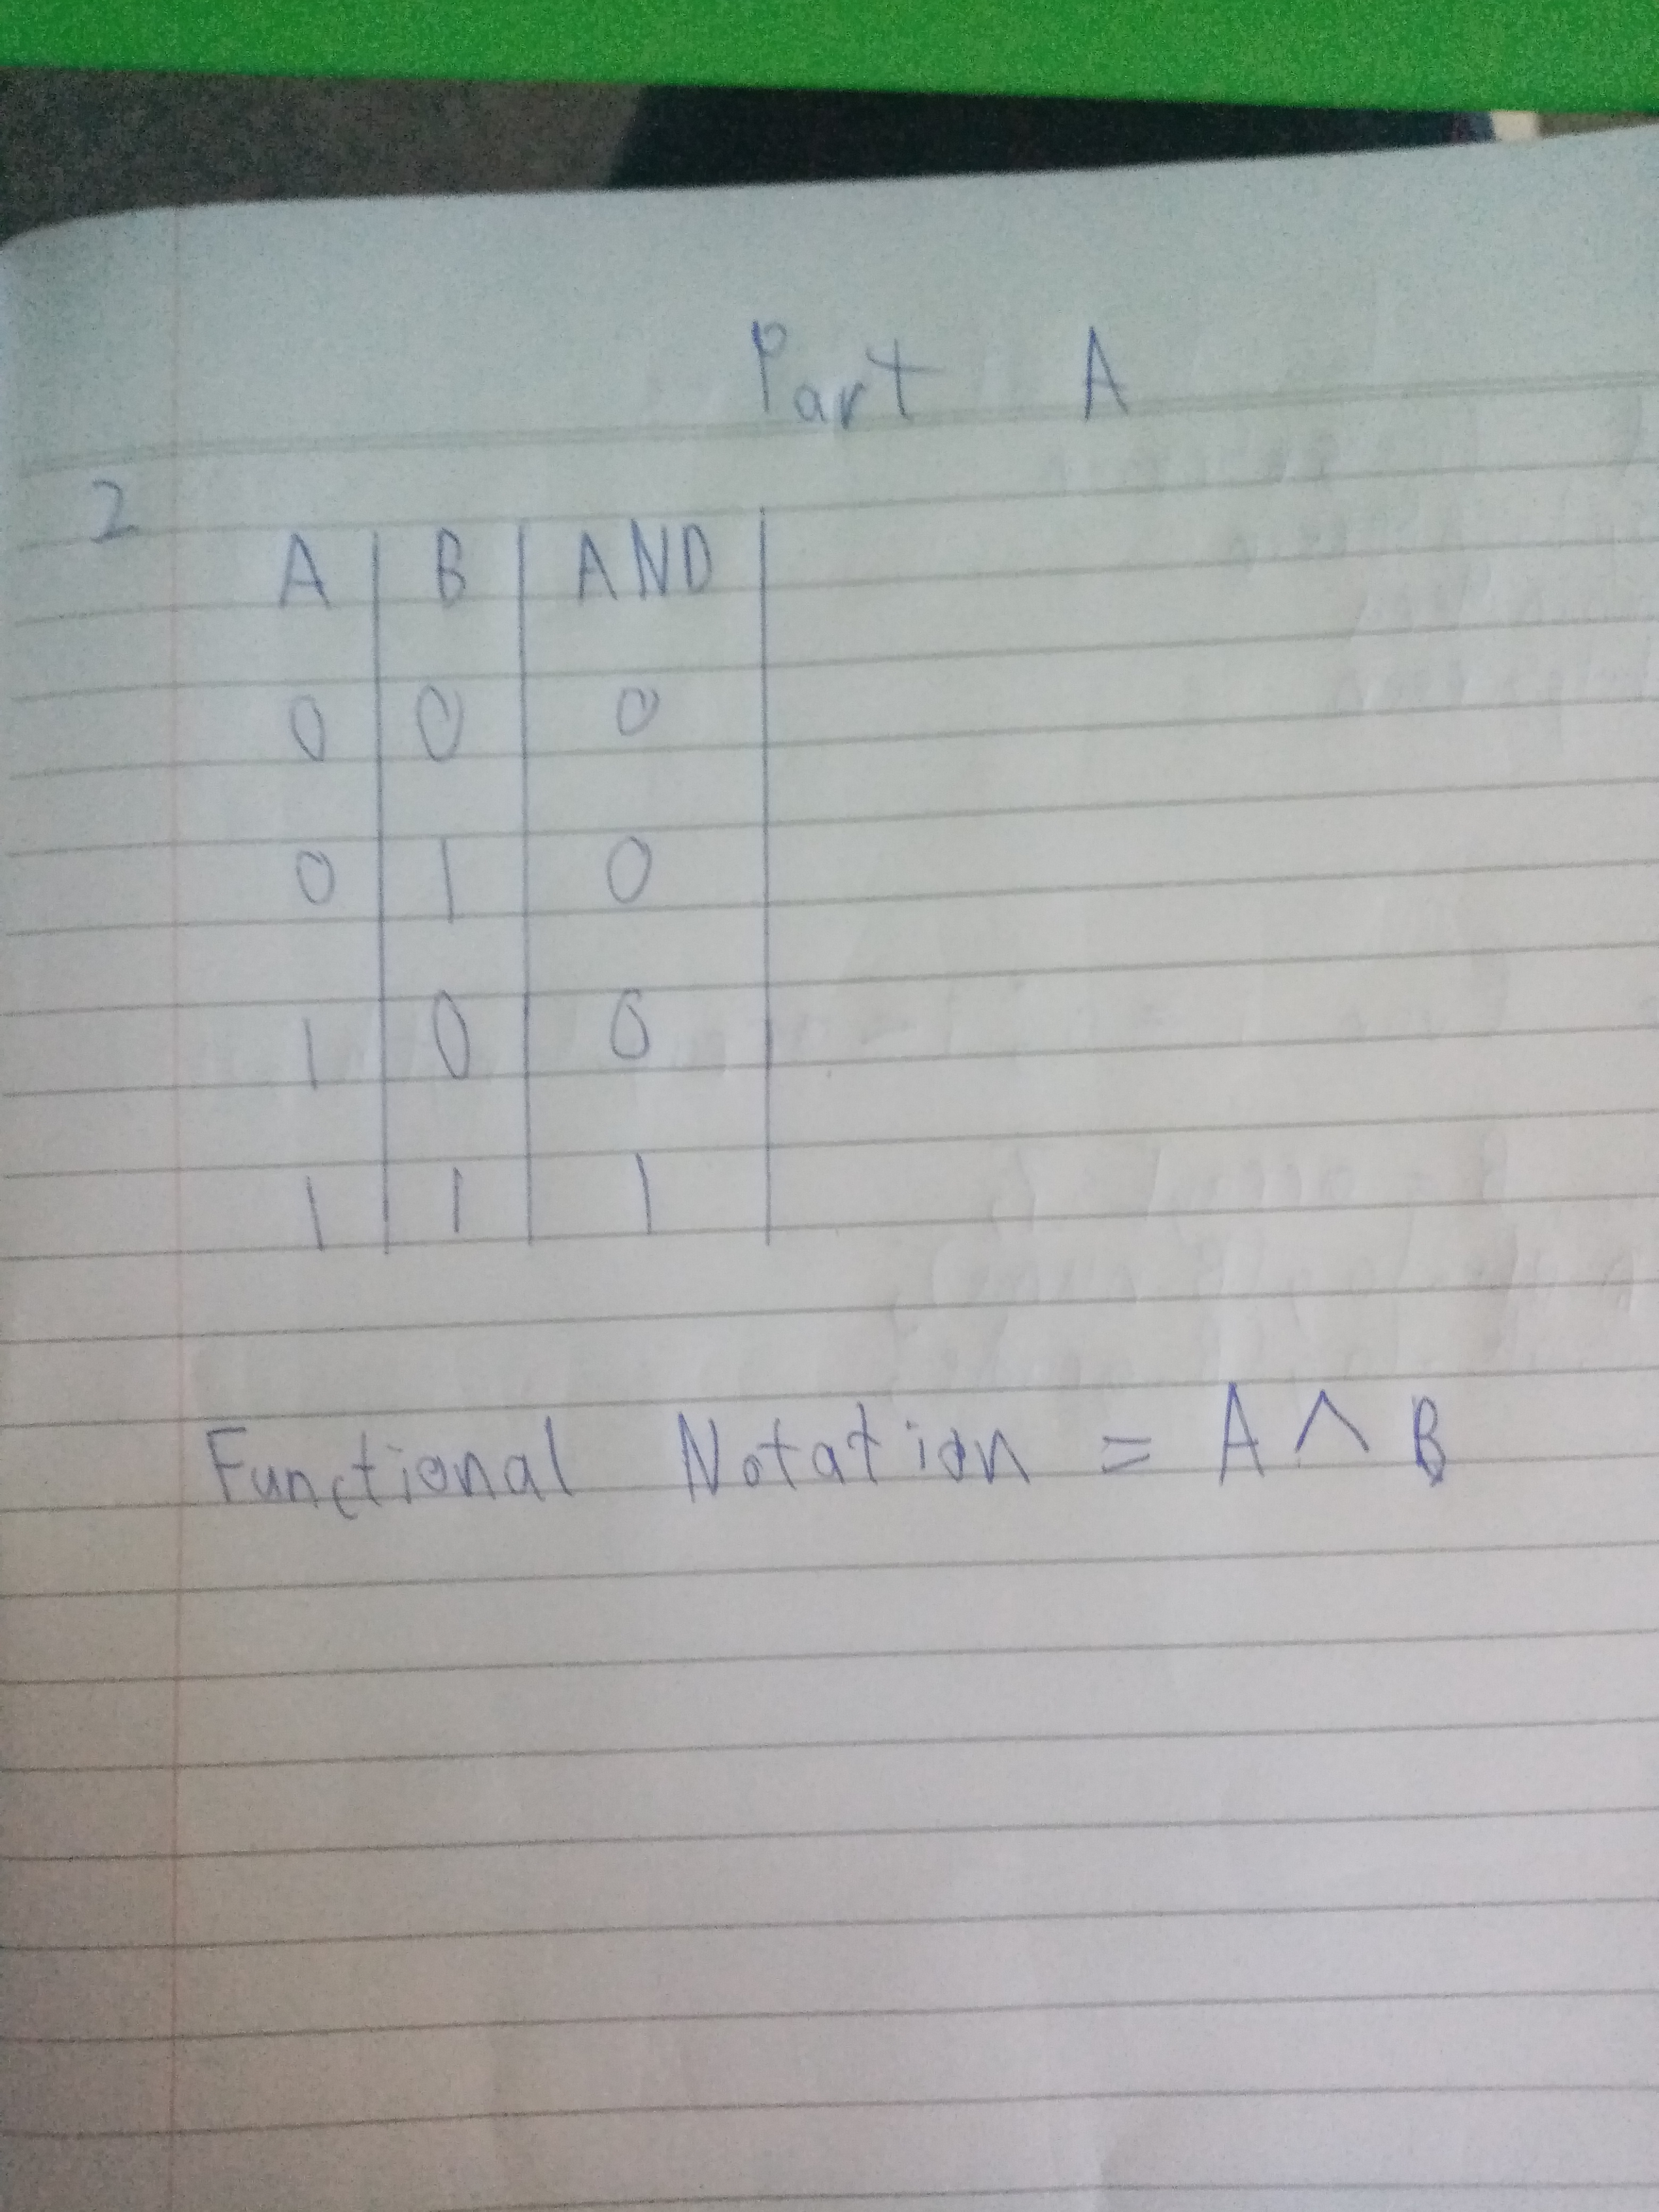 Part A
2
A B AND
0 0 0
0 1 0
1 0 0
1 1 1
Functional Notation = A ∧ B